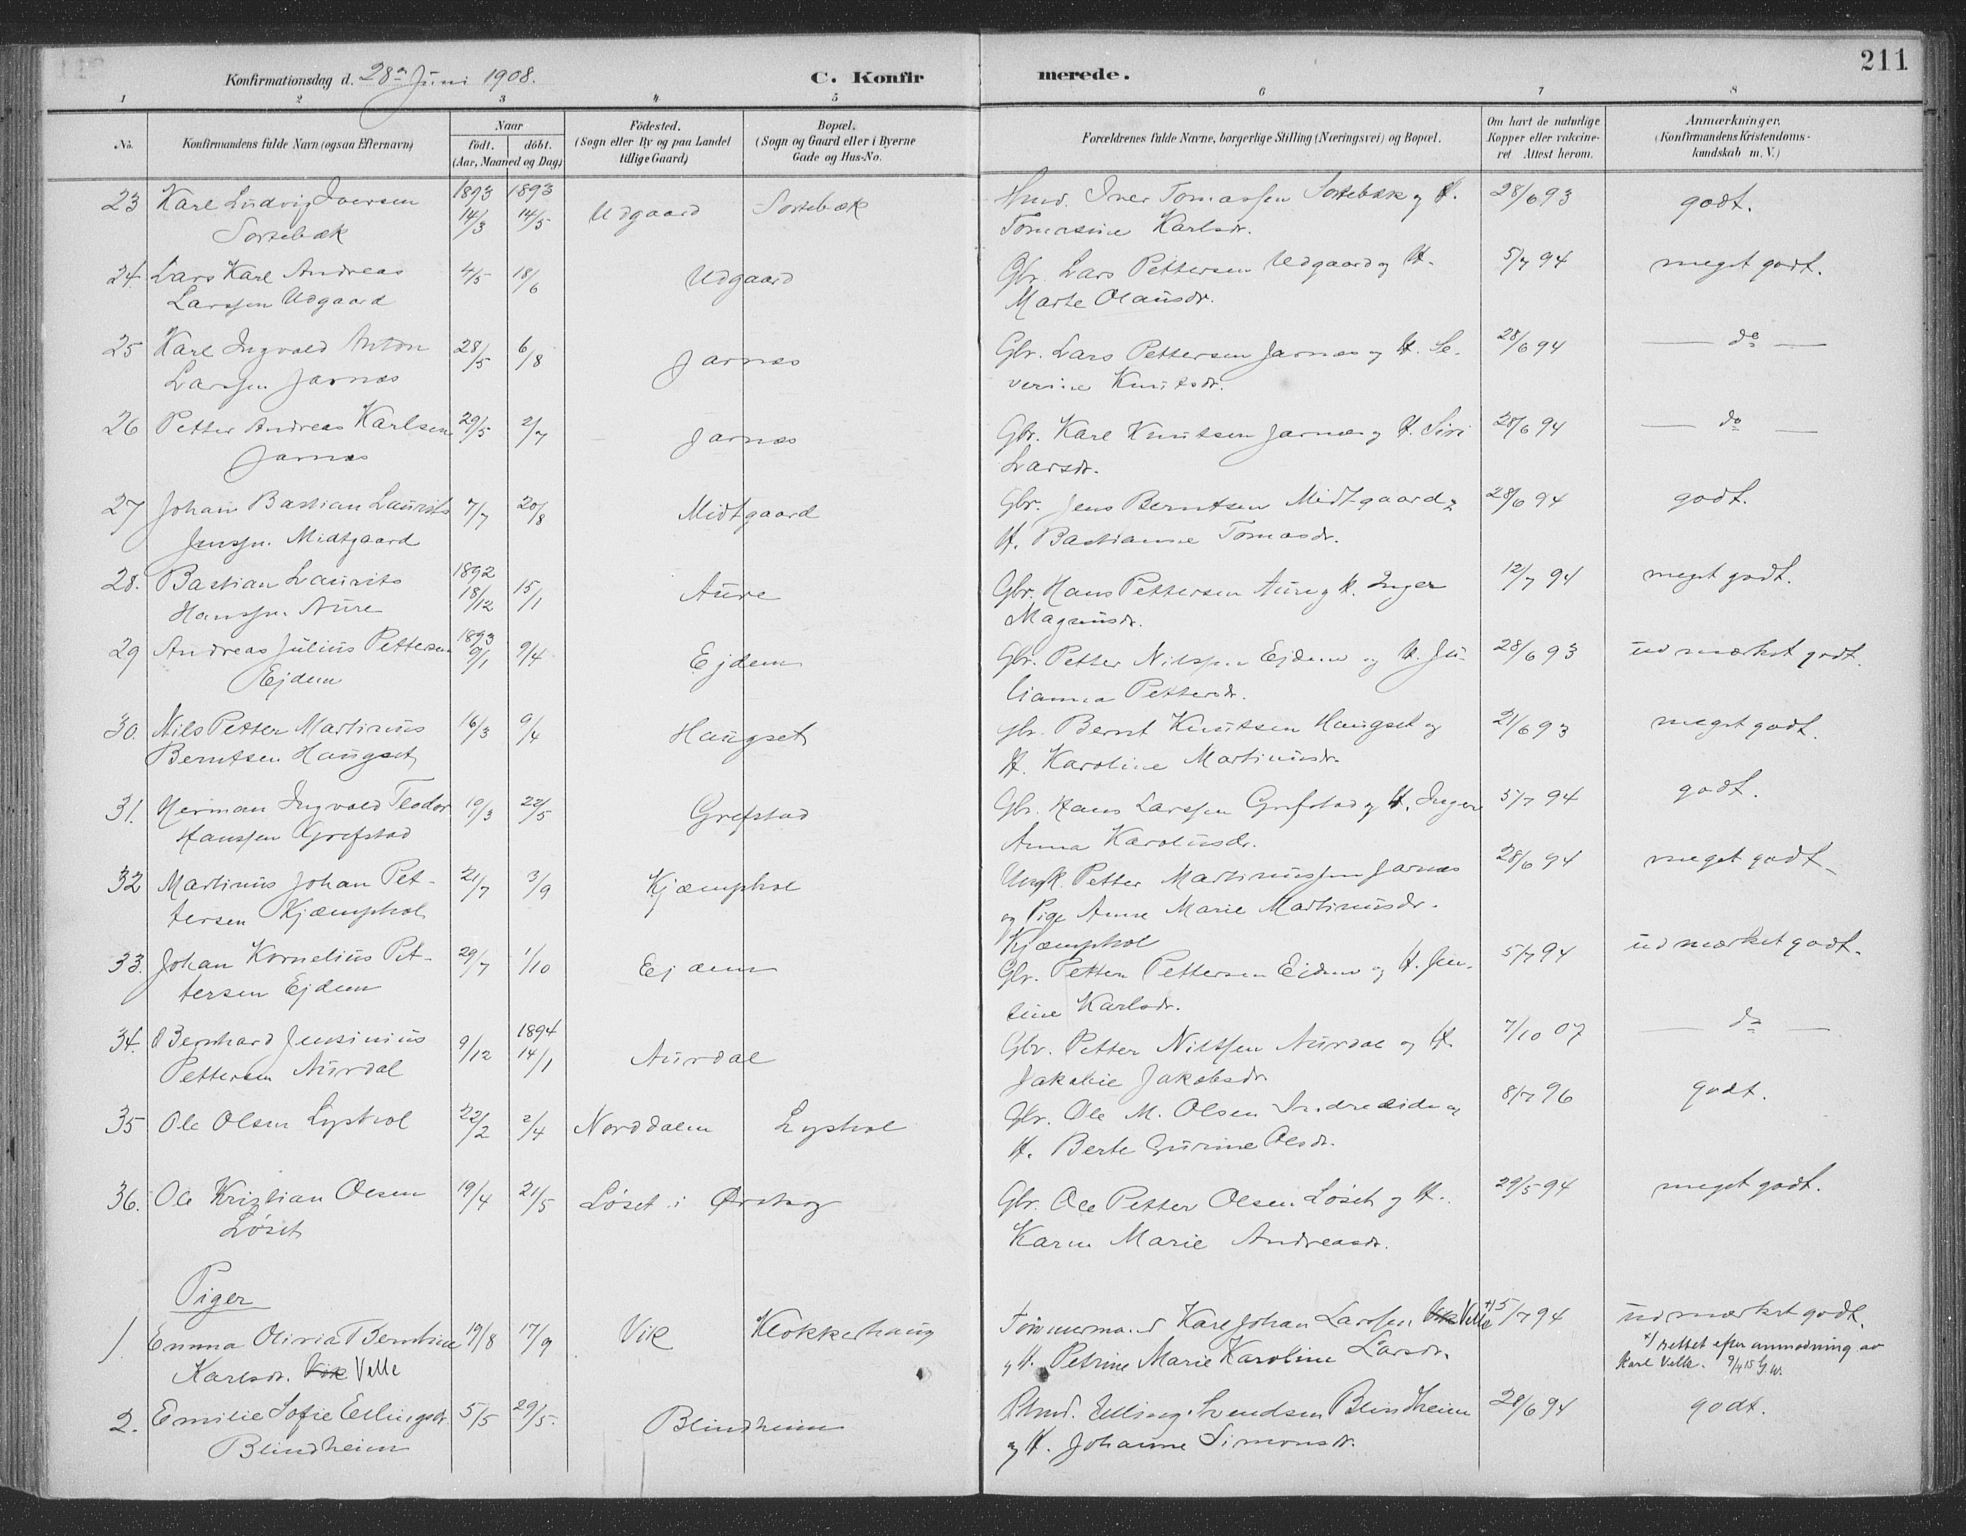 211
Konfirmationsdag d. 28de Juni 1908.
C. Konfirmerede.
1 2 3 4 5 6 7 8
No.
Konfirmandens fulde Navn (ogsaa Efternavn)
Naar
födt. döbt.
(Aar, Maaned og Dag)
Födested.
(Sogn eller By og paa Landet
tillige Gaard)
Bopæl.
(Sogn og Gaard eller i Byerne
Gade og Hus-No.
Forældrenes fulde Navne, borgerlige Stilling (Næringsvei) og Bopæl.
Om havt de naturlige
Kopper eller vakcine-
ret Attest herom.
Anmærkninger.
(Konfirmandens Kristendoms-
kundskab m. V.)
23 Karl Ludvig Iversen 1893 1893 Hmd. Iver Tomassen Sortebæk og H. 28/6 93 godt.
Sortebæk 14/3 14/5 Udgaard Sortebæk Tomasine Karlsdr.
24. Lars Karl Andreas 4/5 18/6 Udgaard Gbr. Lars Pettersen Udgaard og H. 5/7 94 meget godt.
Larssen Udgaard Marte Olausdr.
25 Karl Ingvald Anton 28/5 6/8 Jarnæs Gbr. Lars Pettersen Jarnæs og H. Se- 28/6 94 — do —
Larssen Jarnæs verine Knutsdr.
26 Petter Andreas Karlsen 29/5 2/7 Jarnæs Gbr. Karl Knutsen Jarnæs og H. Siri 28/6 94 — do —
Jarnæs Larsdr.
27 Johan Bastian Laurits 7/7 20/8 Midtgaard Gbr. Jens Berntsen Midtgaard og 28/6 94 godt.
Jenssen Midtgaard H. Bastianne Tomasdr.
28. Bastian Laurits 1892 18/12 15/1 Aure Gbr. Hans Pettersen Aure og H. Inger 12/7 94 meget godt.
Hanssen Aure Magnusdr.
29 Andreas Julius Pettersen 1893 9/1 9/4 Ejdem Gbr. Petter Nilssen Ejdem og H. Ju- 28/6 93 udmærket godt.
Ejdem lianna Pettersdr.
30. Nils Petter Martinus 16/3 9/4 Haugset Gbr. Bernt Knutsen Haugset og 21/6 93 meget godt.
Berntsen Haugset H. Karoline Martinusdr.
31. Herman Ingvald Teodor 19/3 22/5 Grefstad Gbr. Hans Larssen Grefstad og H. Inger 5/7 94 godt.
Hanssen Grefstad Anna Karolusdr.
32 Martinus Johan Pet- 21/7 3/9 Kjæmphol Ungk. Petter Martinussen Jarnæs 28/6 94 meget godt.
tersen Kjæmphol og Pige Anne Marie Martinusdr.
Kjæmphol
33. Johan Kornelius Pet- 29/7 1/10 Ejdem Gbr. Petter Pettersen Ejdem og H. Jen- 5/7 94 udmærket godt.
tersen Ejdem sine Karlsdr.
34. Bernhard Jensinius 9/12 1894 14/1 Aurdal Gbr. Petter Nilssen Aurdal og H. 7/10 07 — do —
Pettersen Aurdal Jakobie Jakobsdr.
35 Ole Olsen Lyshol 22/2 2/4 Norddalen Lyshol Gbr. Ole M. Olsen Indreeide og 8/7 96 godt.
H. Berte Gurine Olsdr.
36. Ole Kristian Olsen 19/4 21/5 Løset i Ørskog Gbr. Ole Petter Olsen Løset og H. 29/5 94 meget godt.
Løset Karen Marie Andreasdr.
Piger
1. Emma Olivia Berntine 19/8 17/9 Vik Klokkerhaug Tømmermand Karl Johan Larssen Vik Velle x) 5/7 94 udmærket godt.
Karlsdr. Vik Velle og H. Petrine Marie Karoline Larsdr. x) rettet efter anmodning av
Karl Velle. 9/4 15 G.W.
2. Emilie Sofie Ellingsdr. 5/5 29/5 Blindheim Elling Svendsen Blindheim 28/6 94 godt.
Blindheim og H. Johanne Simonsdr.